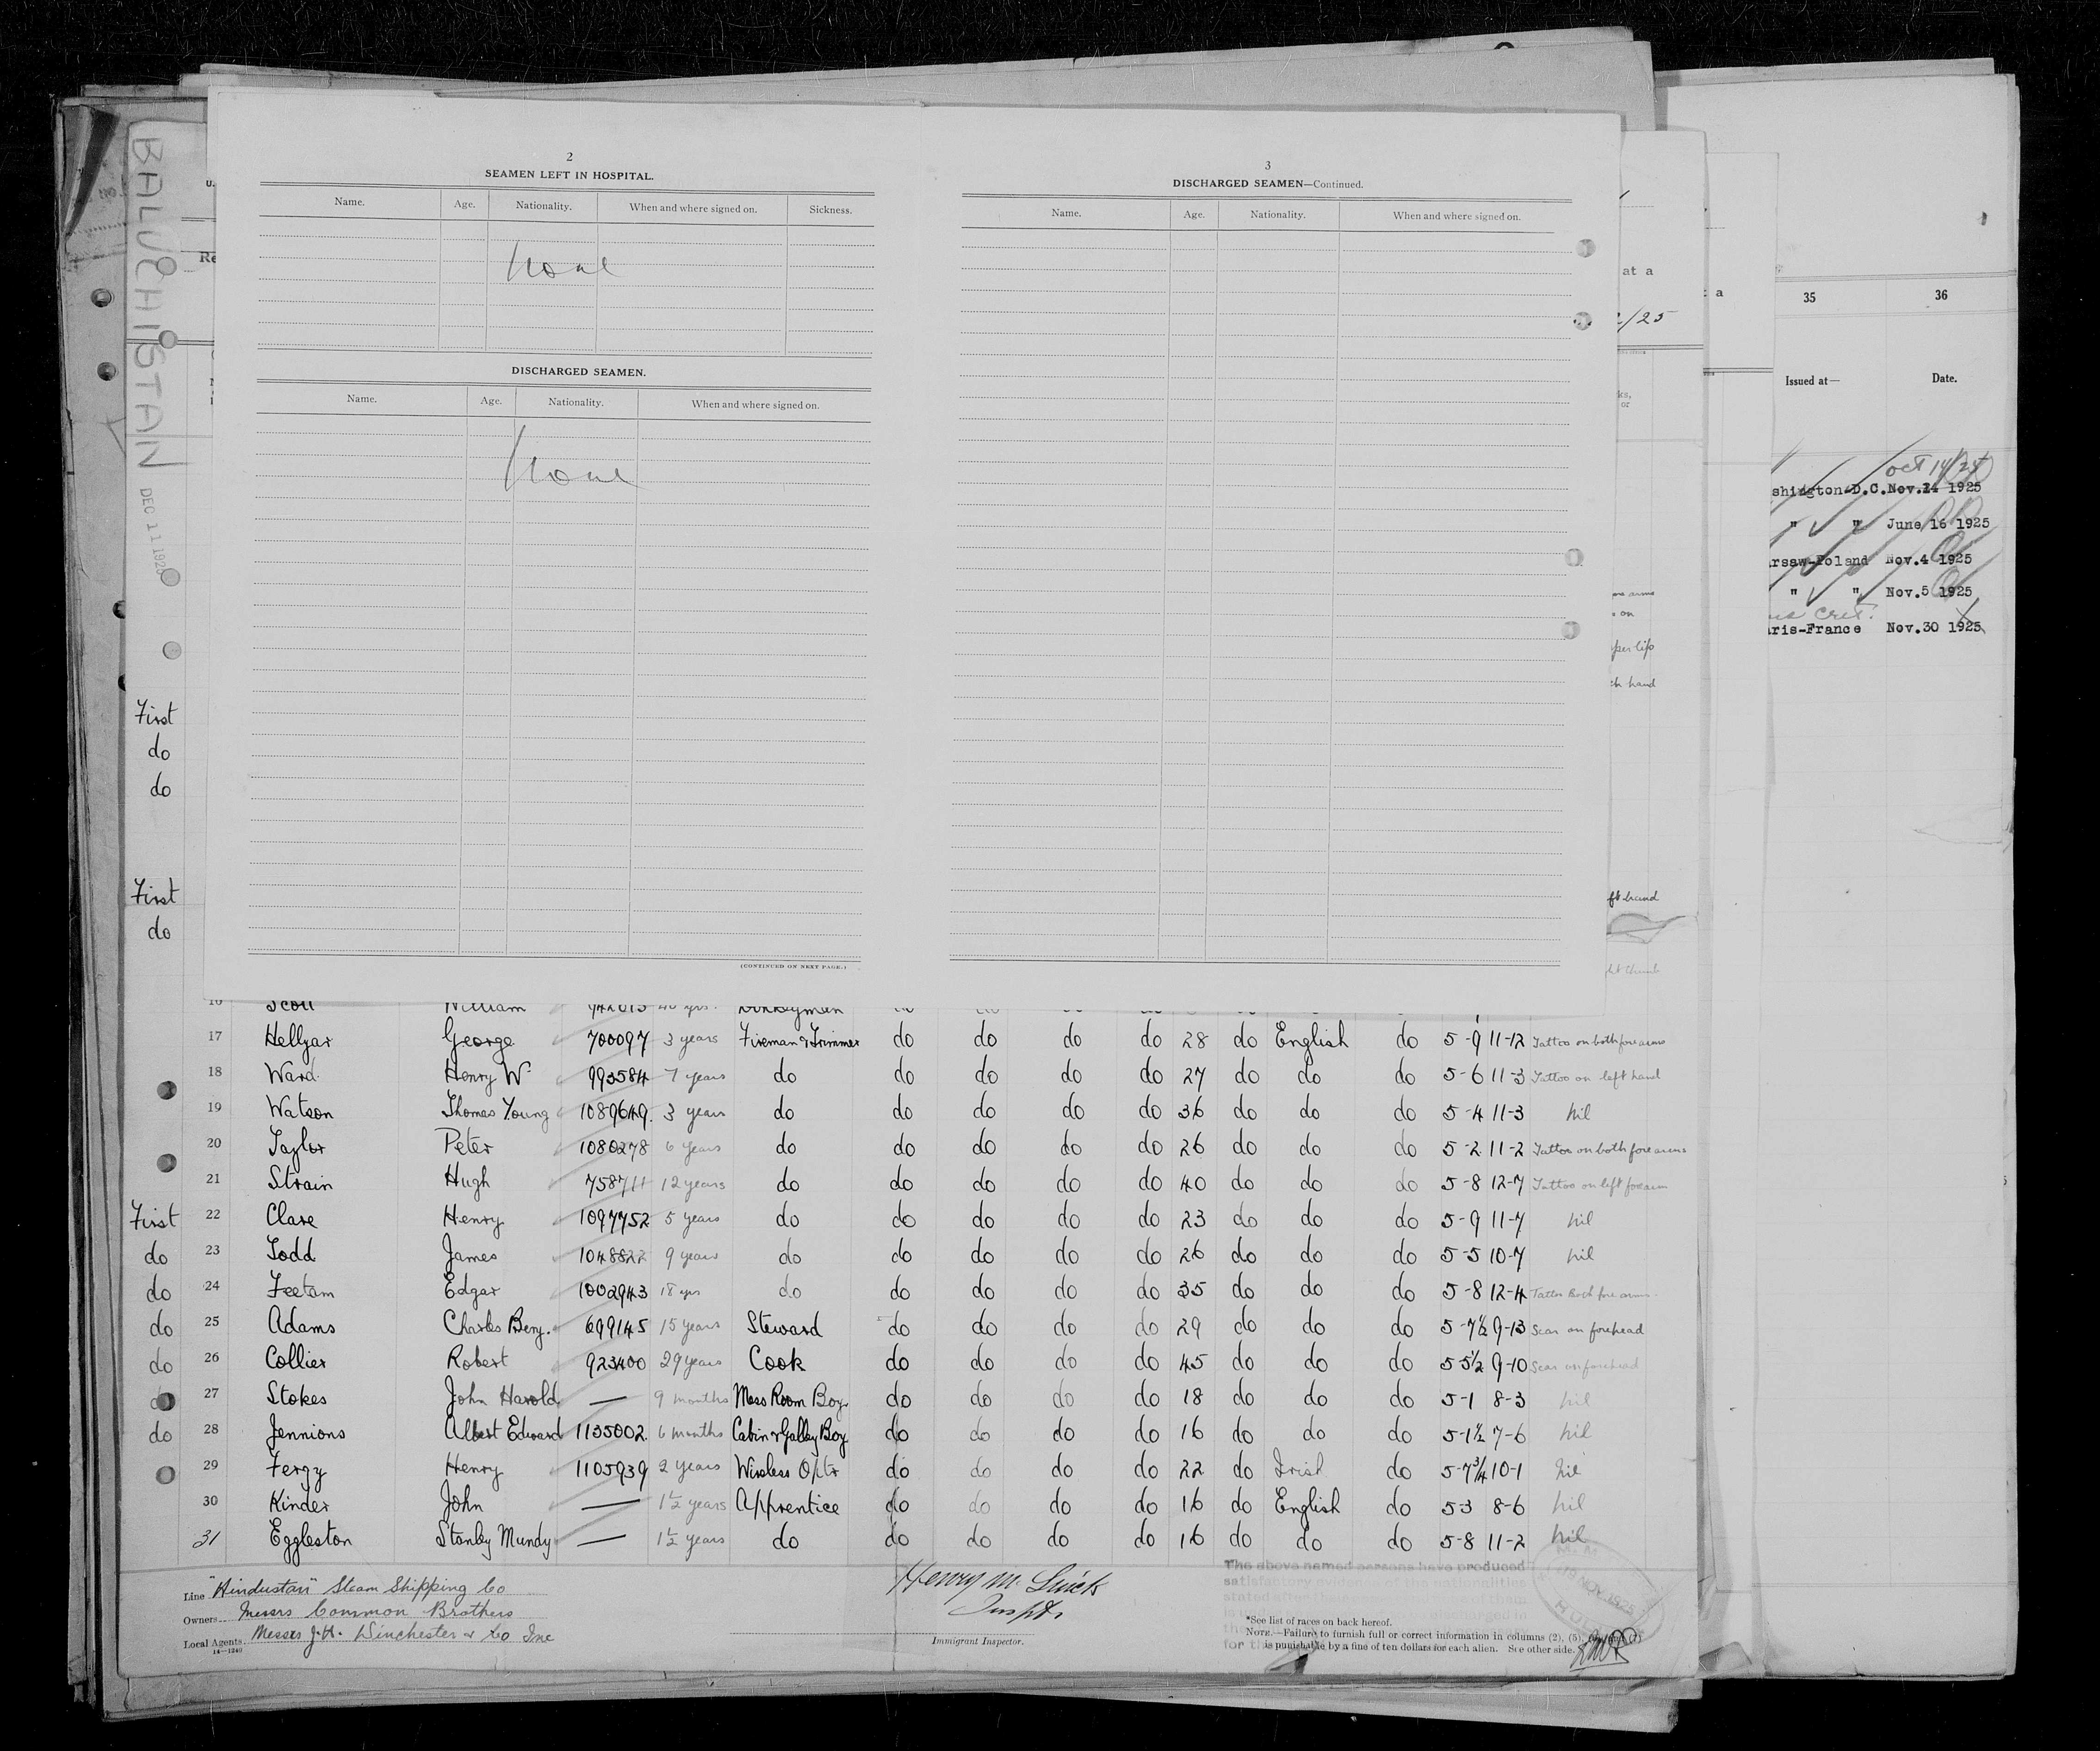 BALUCHISTAN
DEC 11 1925
2
SEAMEN LEFT IN HOSPITAL.
Name. Age. Nationality. When and where signed on. Sickness.
None
DISCHARGED SEAMEN.
Name. Age. Nationality. When and where signed on.
None
(CONTINUED ON NEXT PAGE.)
3
DISCHARGED SEAMEN—Continued.
Name. Age. Nationality. When and where signed on.
at a
/25
a
35 36
Issued at— Date.
Oct 14/25
shington-D.C. Nov.24 1925
" " June 16 1925
rsaw-Poland Nov.4 1925
" " Nov.5 1925
ris-France Nov.30 1925
First
do
do
First
do
16 Scott William 942615 Donkeyman
17 Hellyar George 700097 3 years Fireman & Trimmer do do do do 28 do English do 5-9 11-12 Tattoo on both forearms
18 Ward Henry W 993584 7 years do do do do do 27 do do do 5-6 11-3 Tattoo on left hand
19 Watson Thomas Young 1089649. 3 years do do do do do 36 do do do 5-4 11-3 nil
20 Taylor Peter 1080278 6 years do do do do do 26 do do do 5-2 11-2 Tattoo on both forearms
21 Strain Hugh 758711 12 years do do do do do 40 do do do 5-8 12-7 Tattoo on left forearm
First 22 Clare Henry 1097752 5 years do do do do do 23 do do do 5-9 11-7 nil
do 23 Todd James 1048822 9 years do do do do do 26 do do do 5-5 10-7 nil
do 24 Feetam Edgar 1002943 18 yrs do do do do do 35 do do do 5-8 12-4 Tattoo Both forearms
do 25 Adams Charles Benj. 699145 15 years Steward do do do do 29 do do do 5-7½ 9-13 Scar on forehead
do 26 Collier Robert 923400 29 years Cook do do do do 45 do do do 5 5½ 9-10 Scar on forehead
do 27 Stokes John Harold — 9 months Mess Room Boy do do do do 18 do do do 5-1 8-3 nil
do 28 Jennions Albert Edward 1135002. 6 months Cabin & Galley Boy do do do do 16 do do do 5-1½ 7-6 nil
29 Henry 1105939 2 years Wireless Optr do do do do 22 do Irish do 5-7¾ 10-1 nil
30 Kinder John — 1½ years Apprentice do do do do 16 do English do 5-3 8-6 nil
31 Eggleston Stanley Mundy — 1½ years do do do do do 16 do do do 5-8 11-2 nil
Line "Hindustan" Steam Shipping Co
Owners Messrs Common Brothers
Local Agents Messrs J.H. Winchester & Co Inc
14—1240
Immigrant Inspector.
The above named persons have produced
satisfactory evidence of the nationalities
*See list of races on back hereof.
NOTE.—Failure to furnish full or correct information in columns (2), (5), (7)
is punishable by a fine of ten dollars for each alien. See other side.